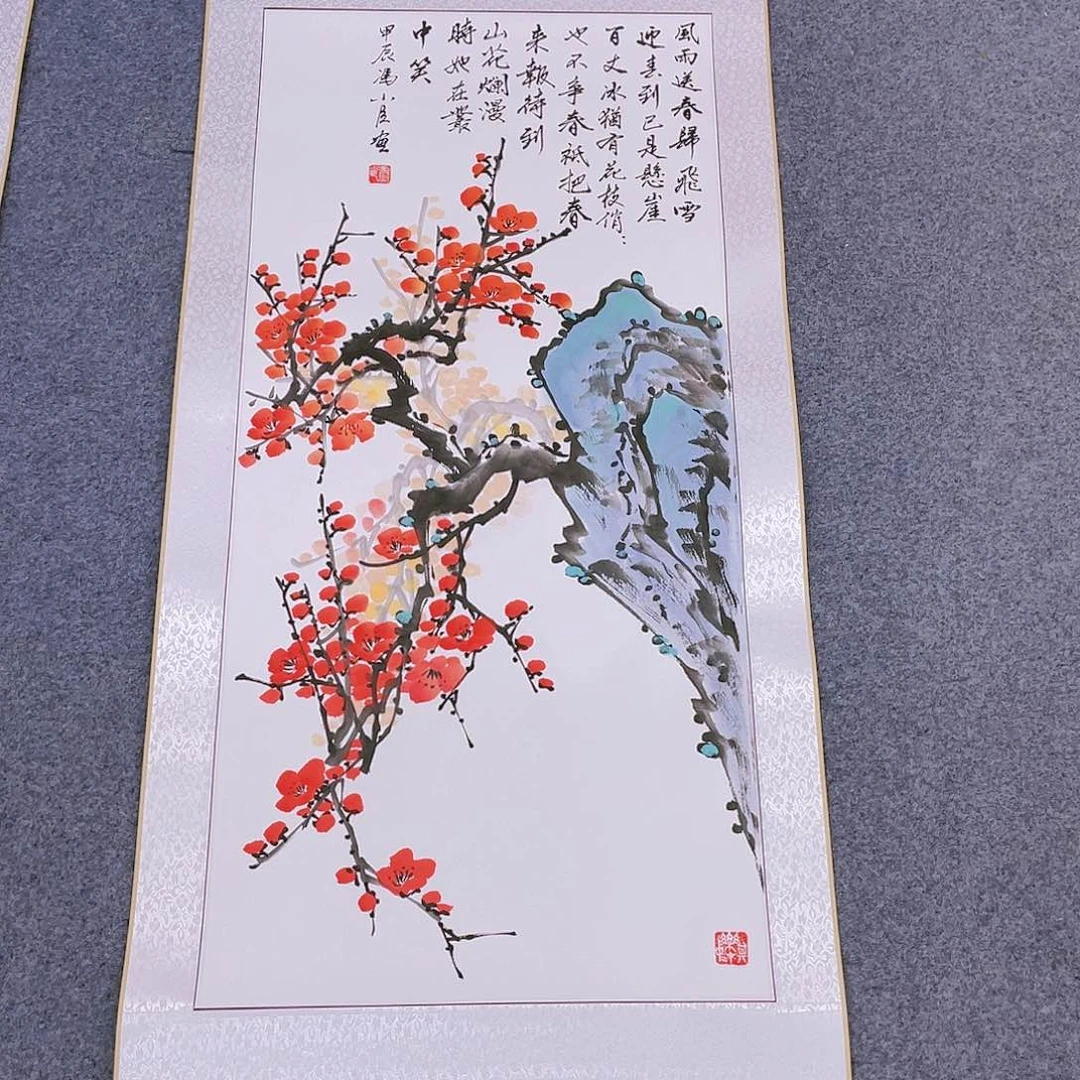 風雨送春歸 飛雪
迎春到已是懸崖
百丈冰猶有花枝俏
也不争春祇把春
来報待到
山花爛漫
時她在叢
中笑
甲辰馮小良画